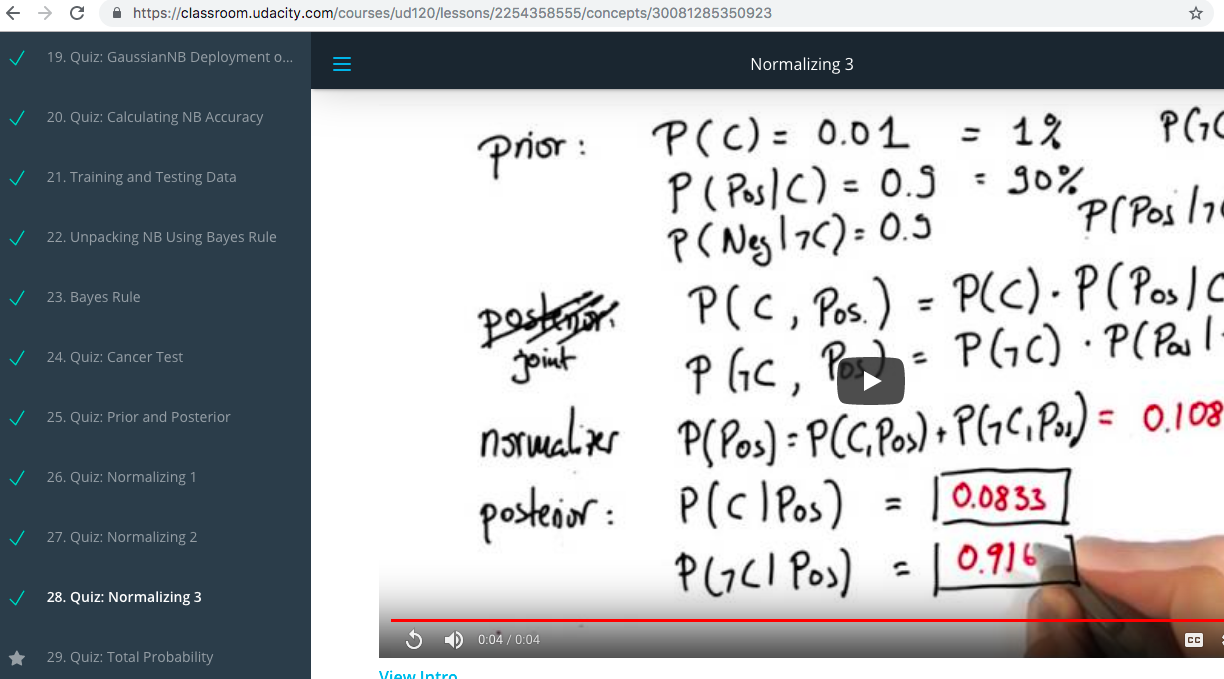 https://classroom.udacity.com/courses/ud120/lessons/2254358555/concepts/30081285350923
19. Quiz: GaussianNB Deployment o...
20. Quiz: Calculating NB Accuracy
21. Training and Testing Data
22. Unpacking NB Using Bayes Rule
23. Bayes Rule
24. Quiz: Cancer Test
25. Quiz: Prior and Posterior
26. Quiz: Normalizing 1
27. Quiz: Normalizing 2
28. Quiz: Normalizing 3
29. Quiz: Total Probability
Normalizing 3
prior: P(C) = 0.01 = 1% P(¬C
P(Pos|C) = 0.9 = 90%
P(Neg|¬C) = 0.9 P(Pos|¬C
posterior: P(C, Pos.) = P(C) · P(Pos|C
joint P(¬C, Pos) = P(¬C) · P(Pos|
normalizer P(Pos) = P(C,Pos) + P(¬C,Pos) = 0.108
posterior: P(C|Pos) = 0.0833
P(¬C|Pos) = 0.916
0:04 / 0:04
CC
View Intro